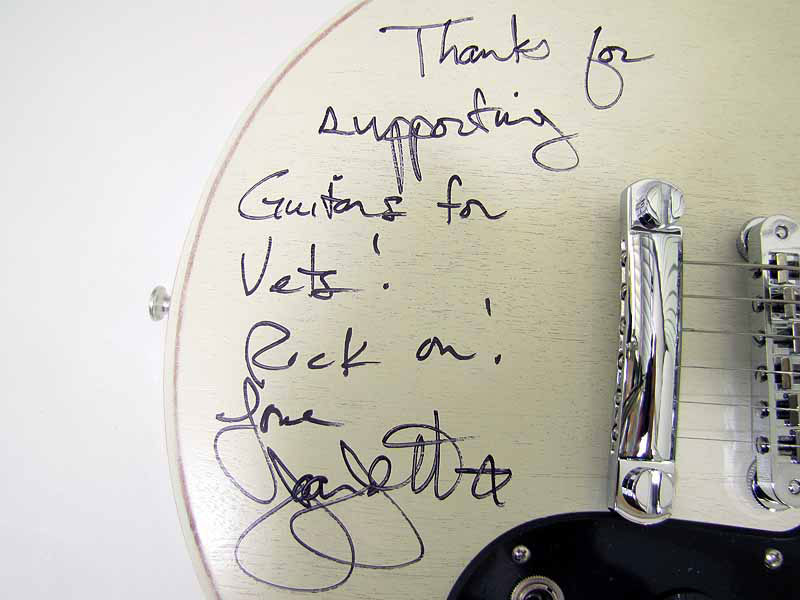 Thanks for
supporting
Guitars for
Vets!
Rock on!
Love